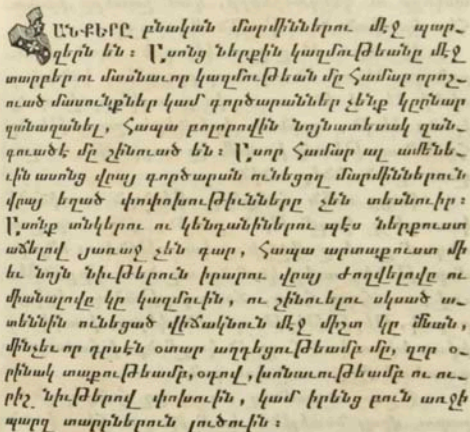 ՀԱՆՔԵՐԸ բնական մարմիններու մէջ պար֊
զերն են։ Ասոնց ներքին կազմութեանը մէջ
տարբեր ու մասնաւոր կազմութեան մը համար որոշ֊
ուած մասունքներ կամ գործարաններ չենք կրրնար
զանազանել, հապա բոլորովին նոյնատեսակ զան֊
գուածէ մը շինուած են։ Ասոր համար ալ ամենե֊
ւին ասոնց վրայ գործարան ունեցող մարմիններուն
վրայ եղած փոփոխութիւնները չեն տեսնուիր։
Ասոնք տնկերու ու կենդանիներու պէս ներքուստ
աճելով յառաջ չեն գար, հապա արտաքուստ մի
եւ նոյն նիւթերուն իրարու վրայ ժողվելովը ու
միանալովը կը կազմուին, ու շինուելու սկսած ա֊
տեննին ունեցած վիճակնուն մէջ միշտ կը մնան,
մինչեւ որ դրսէն օտար ազդեցութեամբ մը, զոր օ֊
րինակ տաքութեամբ, օդով, խոնաւութեամբ ու ու֊
րիշ նիւթերով փոխուին, կամ իրենց բուն առջի
պարզ տարրներուն լուծուին։